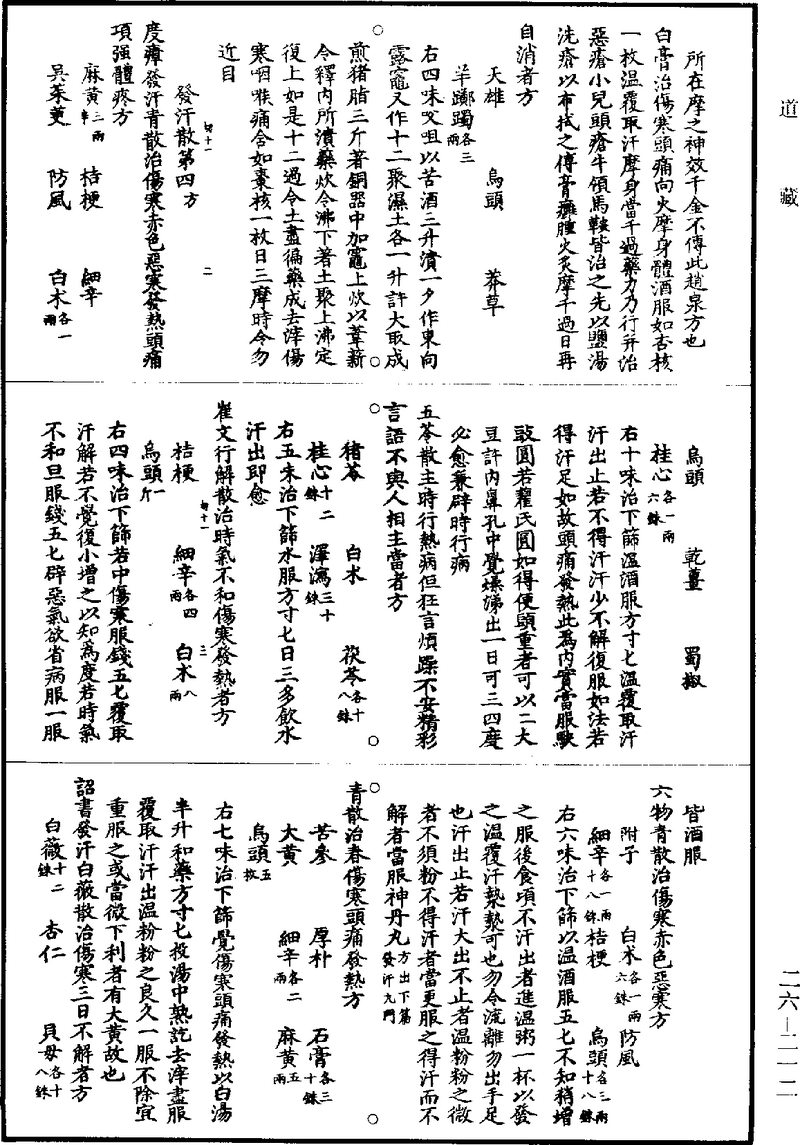 道藏
所在摩之神效千金不傳此趙泉方也
白膏治傷寒頭痛向火摩身體酒服如杏核
一枚溫覆取汗摩身當千過藥力乃行幷治
惡瘡小兒頭瘡牛領馬鞍皆治之先以鹽湯
洗瘡以布拭之傅膏癰腫火炙摩千過日再
自消者方
天雄 烏頭 莽草
羊躑躅各三兩
右四味㕮咀以苦酒三升漬一夕作東向
露竈又作十二聚濕土各一升許大取成
煎豬脂三斤著銅器中加竈上炊以葦薪
令釋內所漬藥炊令沸下著土聚上沸定
復上如是十二過令土盡徧藥成去滓傷
寒咽喉痛含如棗核一枚日三摩時令勿
近目
發汗散第四方
度瘴發汗青散治傷寒赤色惡寒發熱頭痛
項强體疼方
麻黃三兩半 桔梗 細辛
吳茱萸 防風 白朮各一兩
烏頭 乾薑 蜀椒
桂心各一兩六銖
右十味治下篩溫酒服方寸匕溫覆取汗
汗出止若不得汗汗少不解復服如法若
得汗足如故頭痛發熱此爲內實當服駃
豉圓若藿氏圓如得便頭重者可以二大
豆許內鼻孔中覺燥涕出一日可三四度
必愈兼辟時行病
五苓散主時行熱病但狂言煩躁不安精彩
言語不與人相主當者方
豬苓 白朮 茯苓各十八銖
桂心十二銖 澤瀉三十銖
右五味治下篩水服方寸匕日三多飲水
汗出即愈
崔文行解散治時氣不和傷寒發熱者方
桔梗 細辛各四兩 白朮八兩
烏頭一斤
右四味治下篩若中傷寒服錢五匕覆取
汗解若不覺復小增之以知爲度若時氣
不和旦服錢五匕辟惡氣欲省病服一服
皆酒服
六物青散治傷寒赤色惡寒方
附子 白朮各一兩六銖 防風
細辛各一兩十八銖 桔梗 烏頭各三兩十八銖
右六味治下篩以溫酒服五匕不知稍增
之服後食頃不汗出者進溫粥一杯以發
之溫覆汗漐漐可也勿令流離勿出手足
也汗出止若汗大出不止者溫粉粉之微
者不須粉不得汗者當更服之得汗而不
解者當服神丹丸方出下篇發汗九門
青散治春傷寒頭痛發熱方
苦參 厚朴 石膏各三十銖
大黃 細辛各二兩 麻黃五兩
烏頭五枚
右七味治下篩覺傷寒頭痛發熱以白湯
半升和藥方寸匕投湯中熱訖去滓盡服
覆取汗汗出溫粉粉之良久一服不除宜
重服之或當微下利者有大黃故也
詔書發汗白薇散治傷寒三日不解者方
白薇十二銖 杏仁 貝母各十八銖
二六—二一二